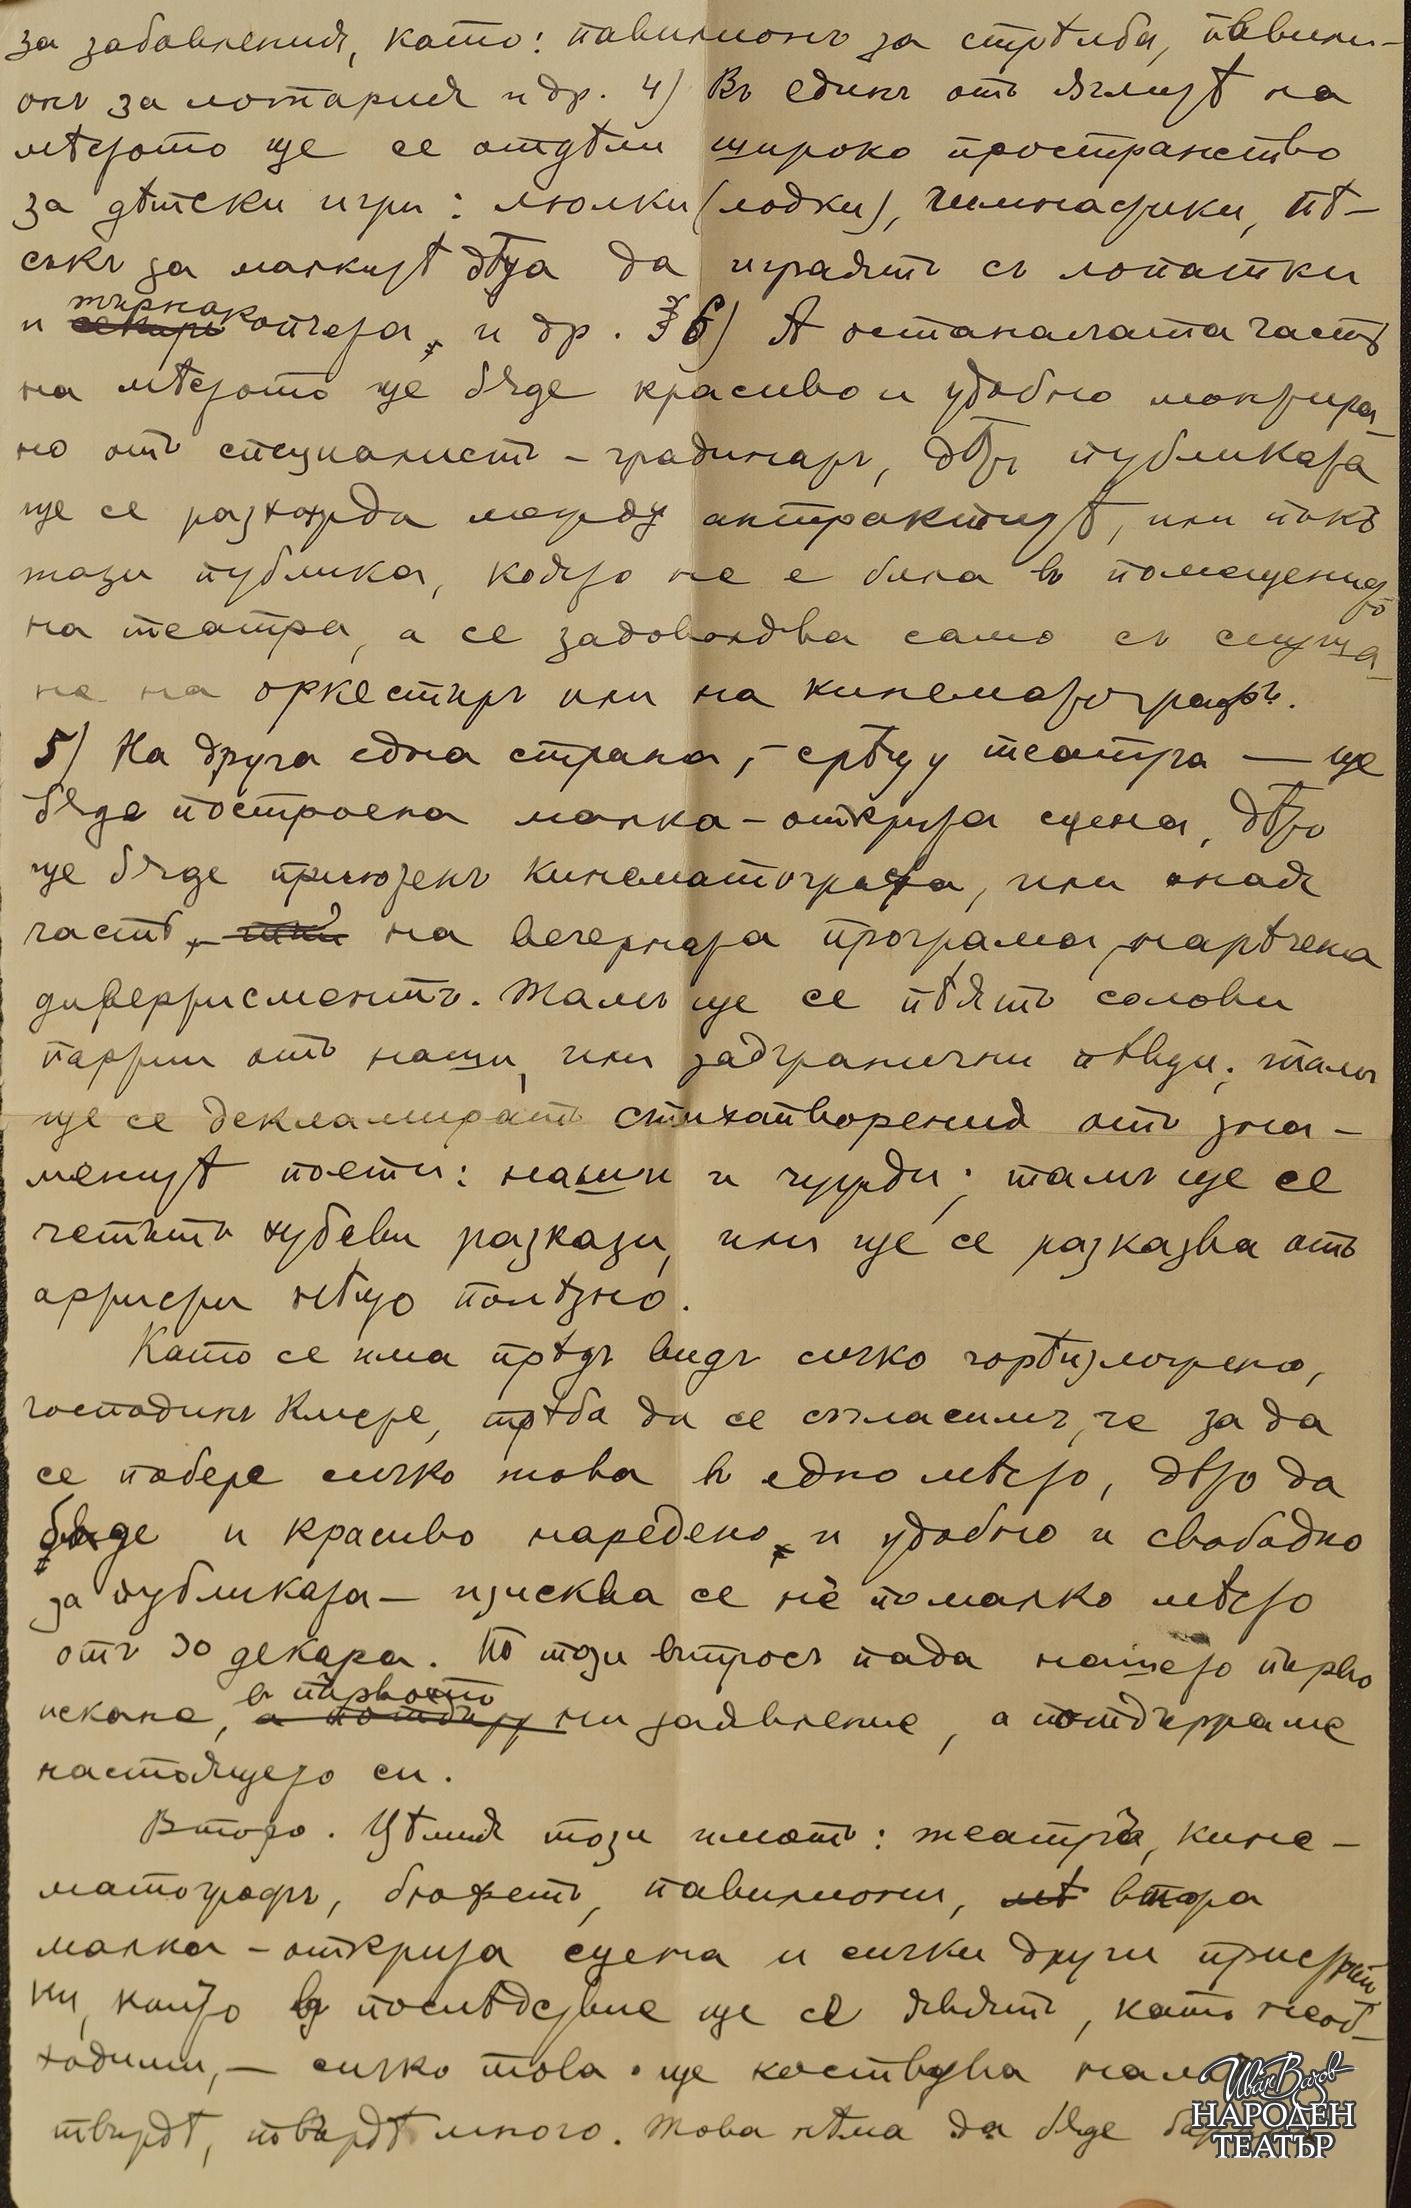 за забавления, като: павилионъ за стрѣлба, павили-
онъ за лотария и др. 4) Въ единъ отъ ѫглитѣ на
мѣстото ще се отдѣли широко пространство
за дѣтски игри: люлки (лодки), гимнастики, пѣ-
съкъ за малкитѣ дѣца да играятъ съ лопатки
и търнакопчета, и др. 6) А останалата часть
на мѣстото ще бѫде красиво и удобно монтира-
но отъ специалистъ - градинаръ, дѣто публиката
ще се разхожда между антрактитѣ, или пъкъ
тази публика, която не е била въ помещението
на театра, а се задоволява само съ слуша-
не на оркестъръ или на кинематографъ.
5) На друга една страна, - срѣщу театра — ще
бѫде построена малка - открита сцена, дѣто
ще бѫде приютенъ кинематографа, или оная
часть, на вечерната програма, нарѣчена
дивертисментъ. Тамъ ще се пѣятъ солови
партии отъ наши, или задгранични пѣвци; тамъ
ще се декламиратъ стихатворения отъ зна-
менитѣ поети: наши и чужди; тамъ ще се
четътъ хубави разкази, или ще се разказва отъ
артисти нѣщо полѣзно.
Като се има прѣдъ видъ сичко горѣизложено,
господинъ Кмете, трѣба да се съгласимъ, че за да
се побере сичко това въ едно мѣсто, дѣто да
бѫде и красиво наредено, и удобно и свободно
за публиката — изисква се не помалко мѣсто
отъ 30 декара. По този въпросъ пада нашето първо
искане, в първото ни заявление, а потдържаме
настоящето си.
Второ. Цѣлия този имотъ: театръа, кине-
матографъ, бюфетъ, павилиони, втора
малка - открита сцена и сички други пристрой
ки, които в последствие ще се явятъ, като необ-
ходими, — сичко това ще коствува намъ
твърдѣ, твърдѣ много. Това нѣма да бѫде
Иван Вазов
НАРОДЕН
ТЕАТЪР